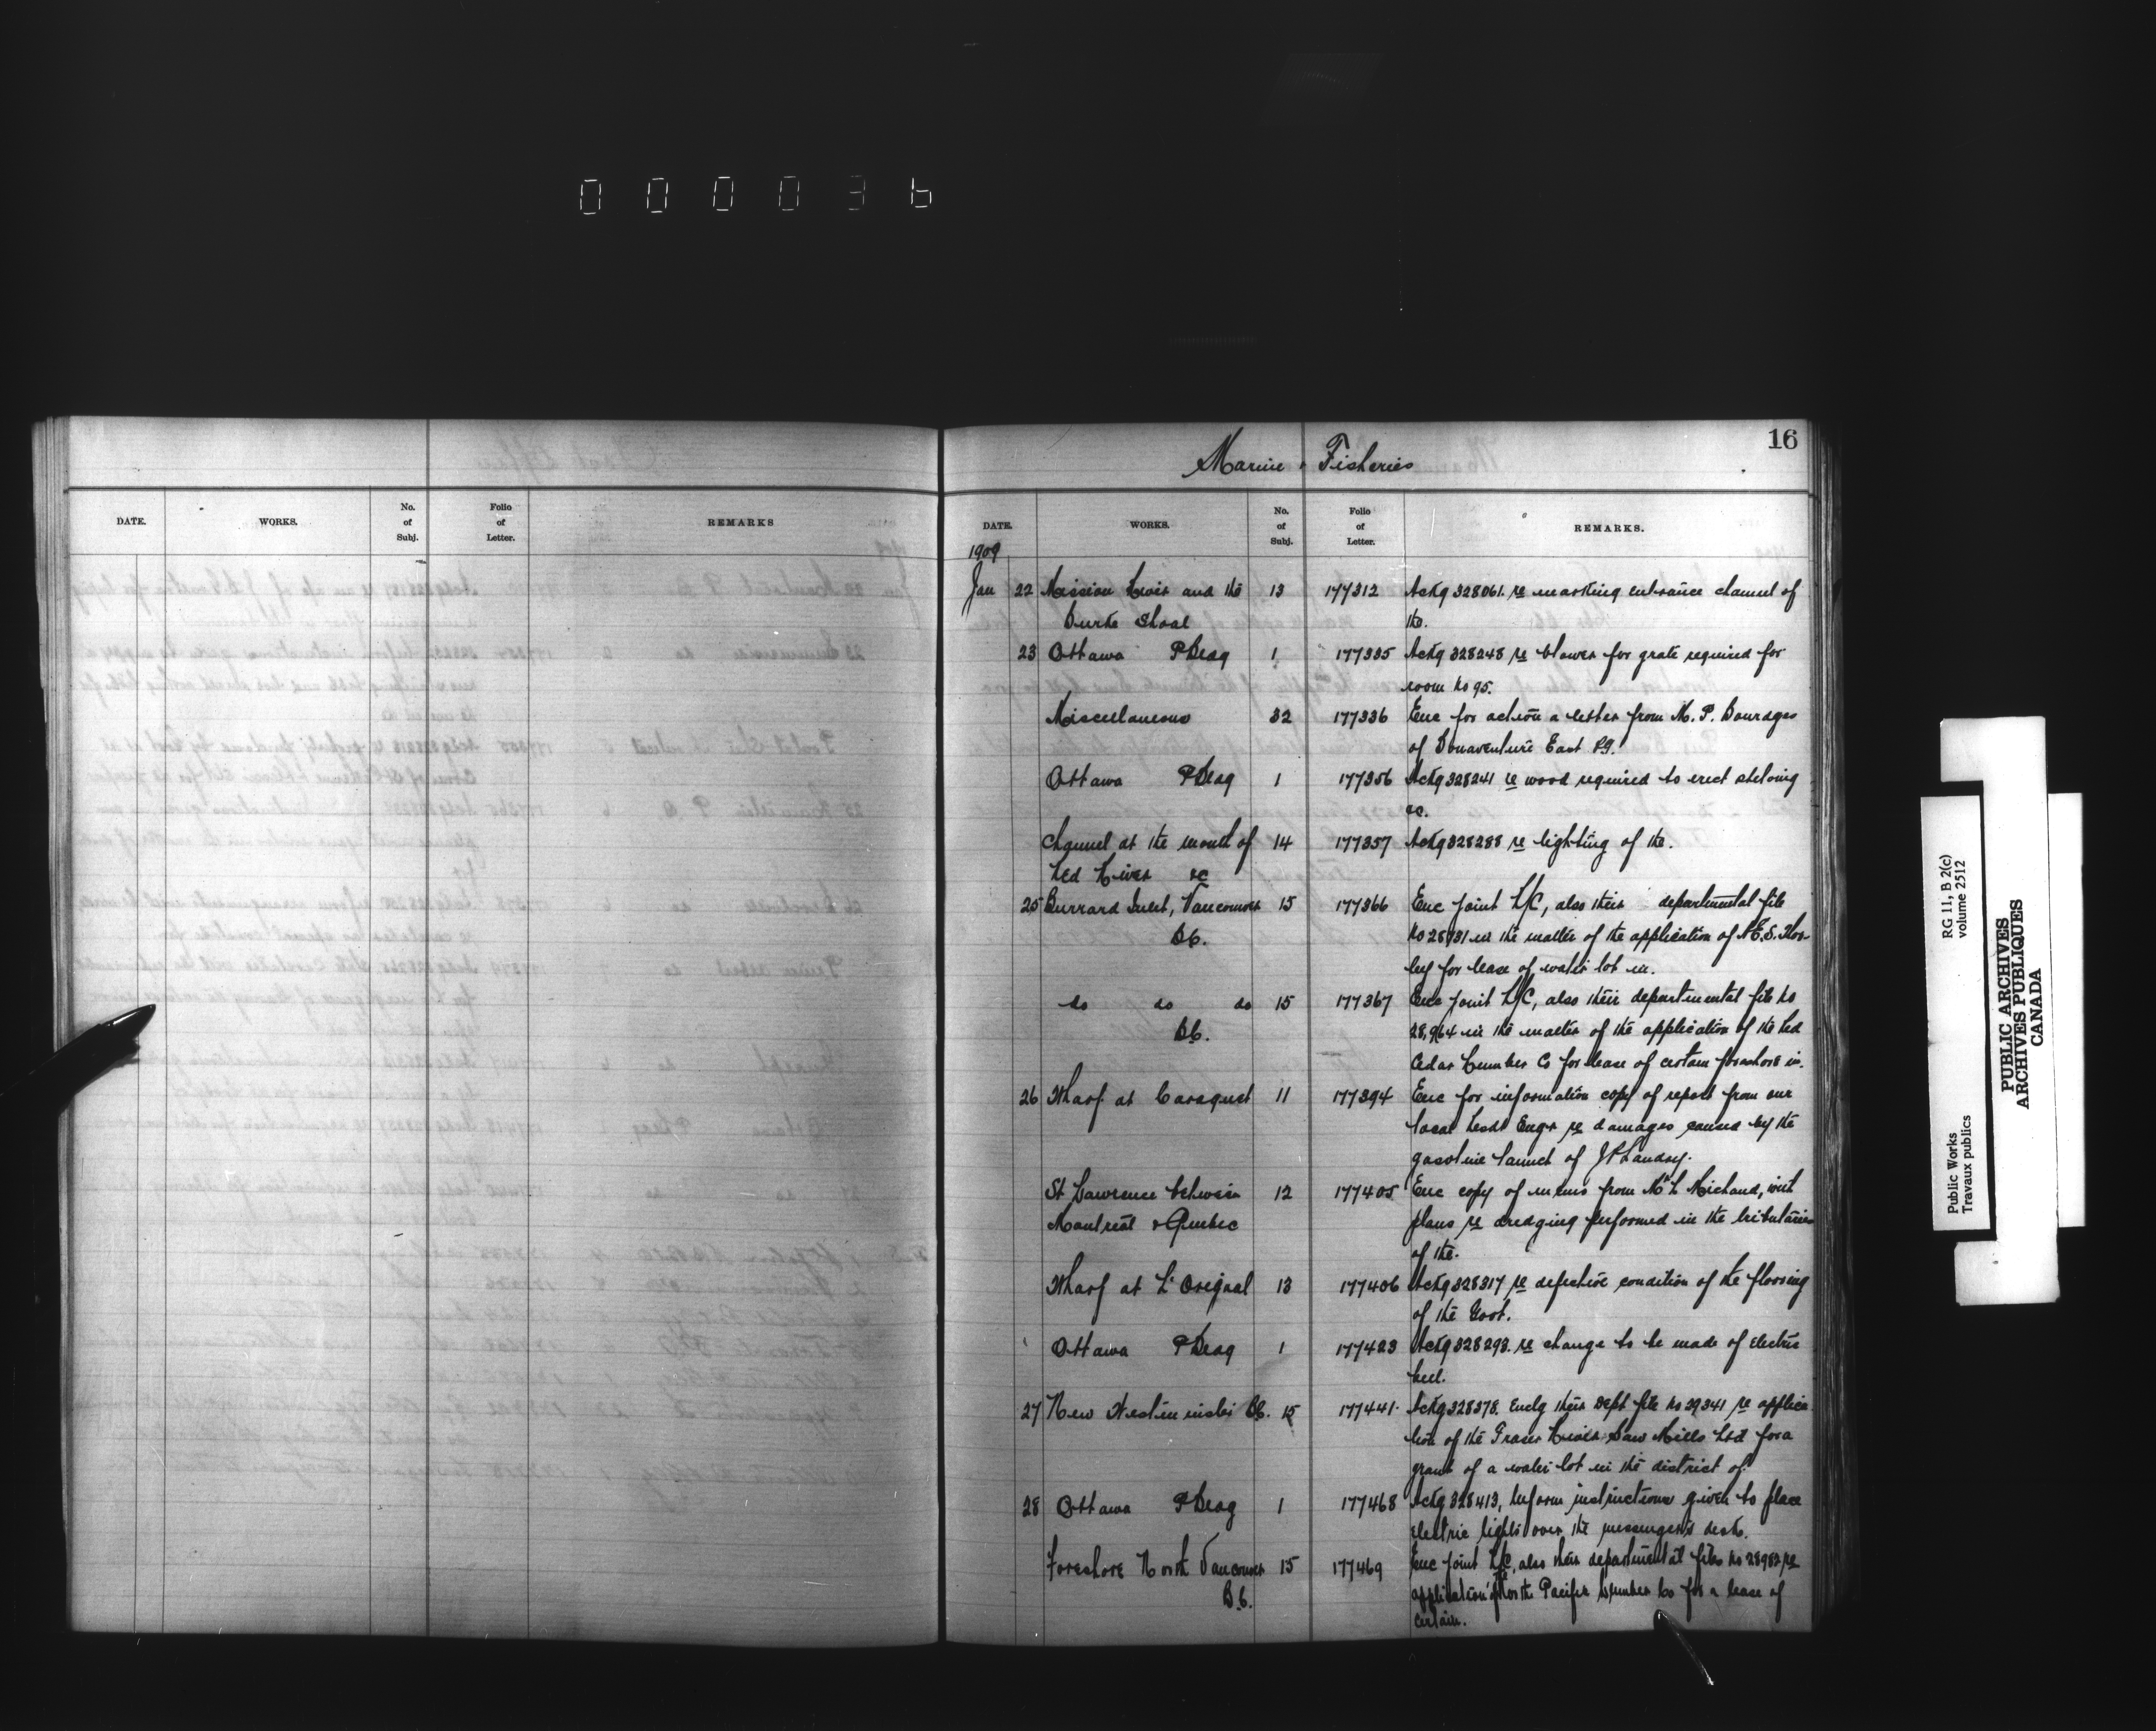 000036
16
Marine & Fisheries
DATE. WORKS. No. of Subj. Folio of Letter. REMARKS
DATE. WORKS. No. of Subj. Folio of Letter. REMARKS.
1909
Jan 22 Mission River and the 13 177312 Ackg 328061. re marking entrance channel of
Burke Shoal the.
23 Ottawa PBldg 1 177335 Ackg 328248 re blower for grate required for
room No 95.
Miscellaneous 32 177336 Enc for action a letter from M. P. Bourages
of Bonaventure East PQ.
Ottawa PBldg 1 177356 Ackg 328241 re wood required to erect shelving
&c.
Channel at the mouth of 14 177357 Ackg 328288 re lighting of the.
Red River &c
25 Burrard Inlet, Vancouver 15 177366 Enc joint O/C, also their departmental file
BC. No 28931 in the matter of the application of
for lease of water lot in.
do do do 15 177367 Enc joint O/C, also their departmental file No
BC. 28,964 in the matter of the application of the Red
Cedar Lumber Co for lease of certain foreshore in.
26 Wharf at Caraquet 11 177394 Enc for information copy of report from our
local Resdt Engr re damages caused by the
gasoline launch of J P Landry.
St Lawrence between 12 177405 Enc copy of memo from Mr L Michaud, with
Montreal & Quebec plans re dredging performed in the tributaries
of the.
Wharf at L'Orignal 13 177406 Ackg 328317 re defective condition of the flooring
of the Govt.
Ottawa PBldg 1 177423 Ackg 328293. re change to be made of electric
bell.
27 New Westminster BC. 15 177441. Ackg 328378. Enclg their Dept file No 29341 re applica
tion of the Fraser River Saw Mills Ltd for a
grant of a water lot in the district of.
28 Ottawa PBldg 1 177468 Ackg 328413, Inform instructions given to place
electric lights over the messenger's desk.
Foreshore North Vancouver 15 177469 Enc joint O/C, also their departmental file No 28982 re
B.C. application of the North Pacific Lumber Co for a lease of
certain.
RG 11, B 2(c)
volume 2512
Public Works
Travaux publics
PUBLIC ARCHIVES
ARCHIVES PUBLIQUES
CANADA